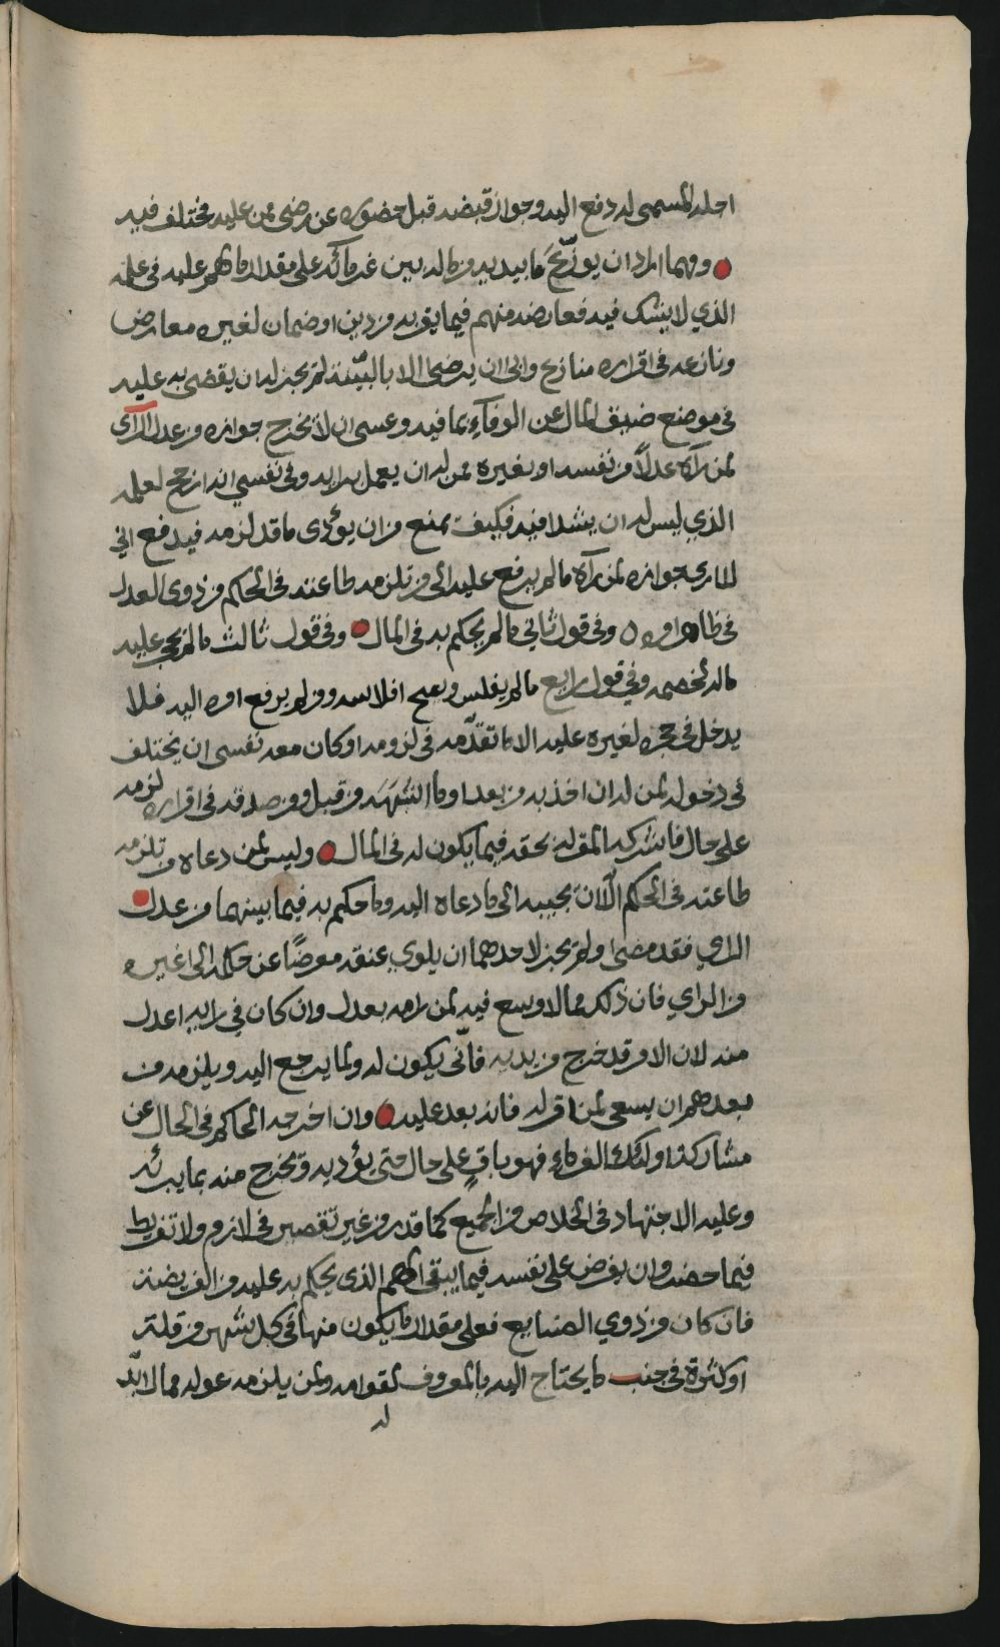 اجله المسمى له دفع اليه وجواز قبضه قبل حضوره عن رضى ممن عليه مختلف فيه
ومهما اراد ان يوزّع ما بيديه من ماله بين غرمائه على مقدار ما ظهر عليه في علمه
الذي لا يشك فيه فعارضه منهم فيما يقر به من دين او ضمان لغيره معارض
ونازعه في اقراره منازع وابى ان يرضى الا بالبيّنة لم يجز له ان يقضي به عليه
في موضع ضيق المال عن الوفاء بما فيه وعسى ان لا يخرج جوازه من عدل الرأي
لمن رآه عدلاً من نفسه او بغيره ممن له ان يعمل برايه وفي نفسي انه ارجح لعلمه
الذي ليس له ان يشك فيه فكيف يمنع من ان يؤدى ما قد لزمه فيدفع اني
لارى جوازه لمن رآه ما لم يرفع عليه الى من تلزمه طاعته في الحكم من ذوي العدل
في ظاهر امره وفي قول ثاني ما لم يحكم به في المال وفي قول ثالث ما لم يحجر عليه
ماله لخصمه وفي قول رابع ما لم يفلس ويصح افلاسه ومن لم يرفع امره اليه فلا
يدخل في حجره لغيره عليه الا ما تقدّمه في لزومه او كان معه نفسى ان يختلف
في دخوله لمن له ان اخذ به من بعد او ما اشبهه من قبل ومن صدقه في اقراره لزمه
على حال فاشركه المقر له بحقه فيما يكون له في المال وليس لمن دعاه من تلزمه
طاعته في الحكم الّا ان يجيبه الى ما دعاه اليه وما حكم به فيما بينهما من عدل
الراي فقد مضى ولم يجز لاحدهما ان يلوي عنقه معرضًا عن حكمه الى غيره
من الراي فان ذلك مما لا وسع فيه لمن رامه بعدل وان كان في رايه اعدل
منه لان الامر قد خرج من يديه فانّى يكون له ولما يرجع اليه ويلزمه من
بعدهم ان يسعى لمن اقر له فانه بعد عليه وان اخرجه الحاكم في الحال عن
مشاركة اولئك الغرماء فهو باقٍ على حال حتى يؤديه ويخرج منه بما يبرئه
وعليه الاجتهاد في الخلاص من الجميع كما قدر من غير تقصير في لازم ولا تفريط
فيما حضه وان يفرض على نفسه فيما يبقى لهم الذي يحكم به عليه من الفريضة
فان كان من ذوي الصنايع فعلى مقدار ما يكون منها في كل شهر من قلة
او كثرة في جنب ما يحتاج اليه بالمعروف لقوامه ولمن يلزمه عوله مما لا بدّ
له